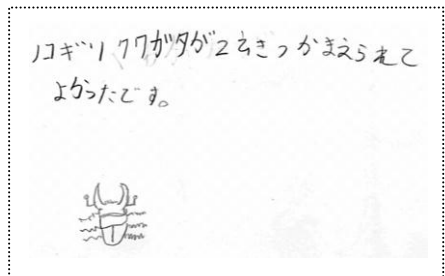 ノコギリクワガタが2ひきつかまえられて
よかったです。